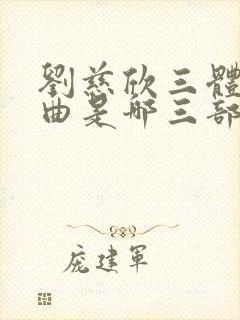 劉慈欣三體
曲是哪三部
龐建軍